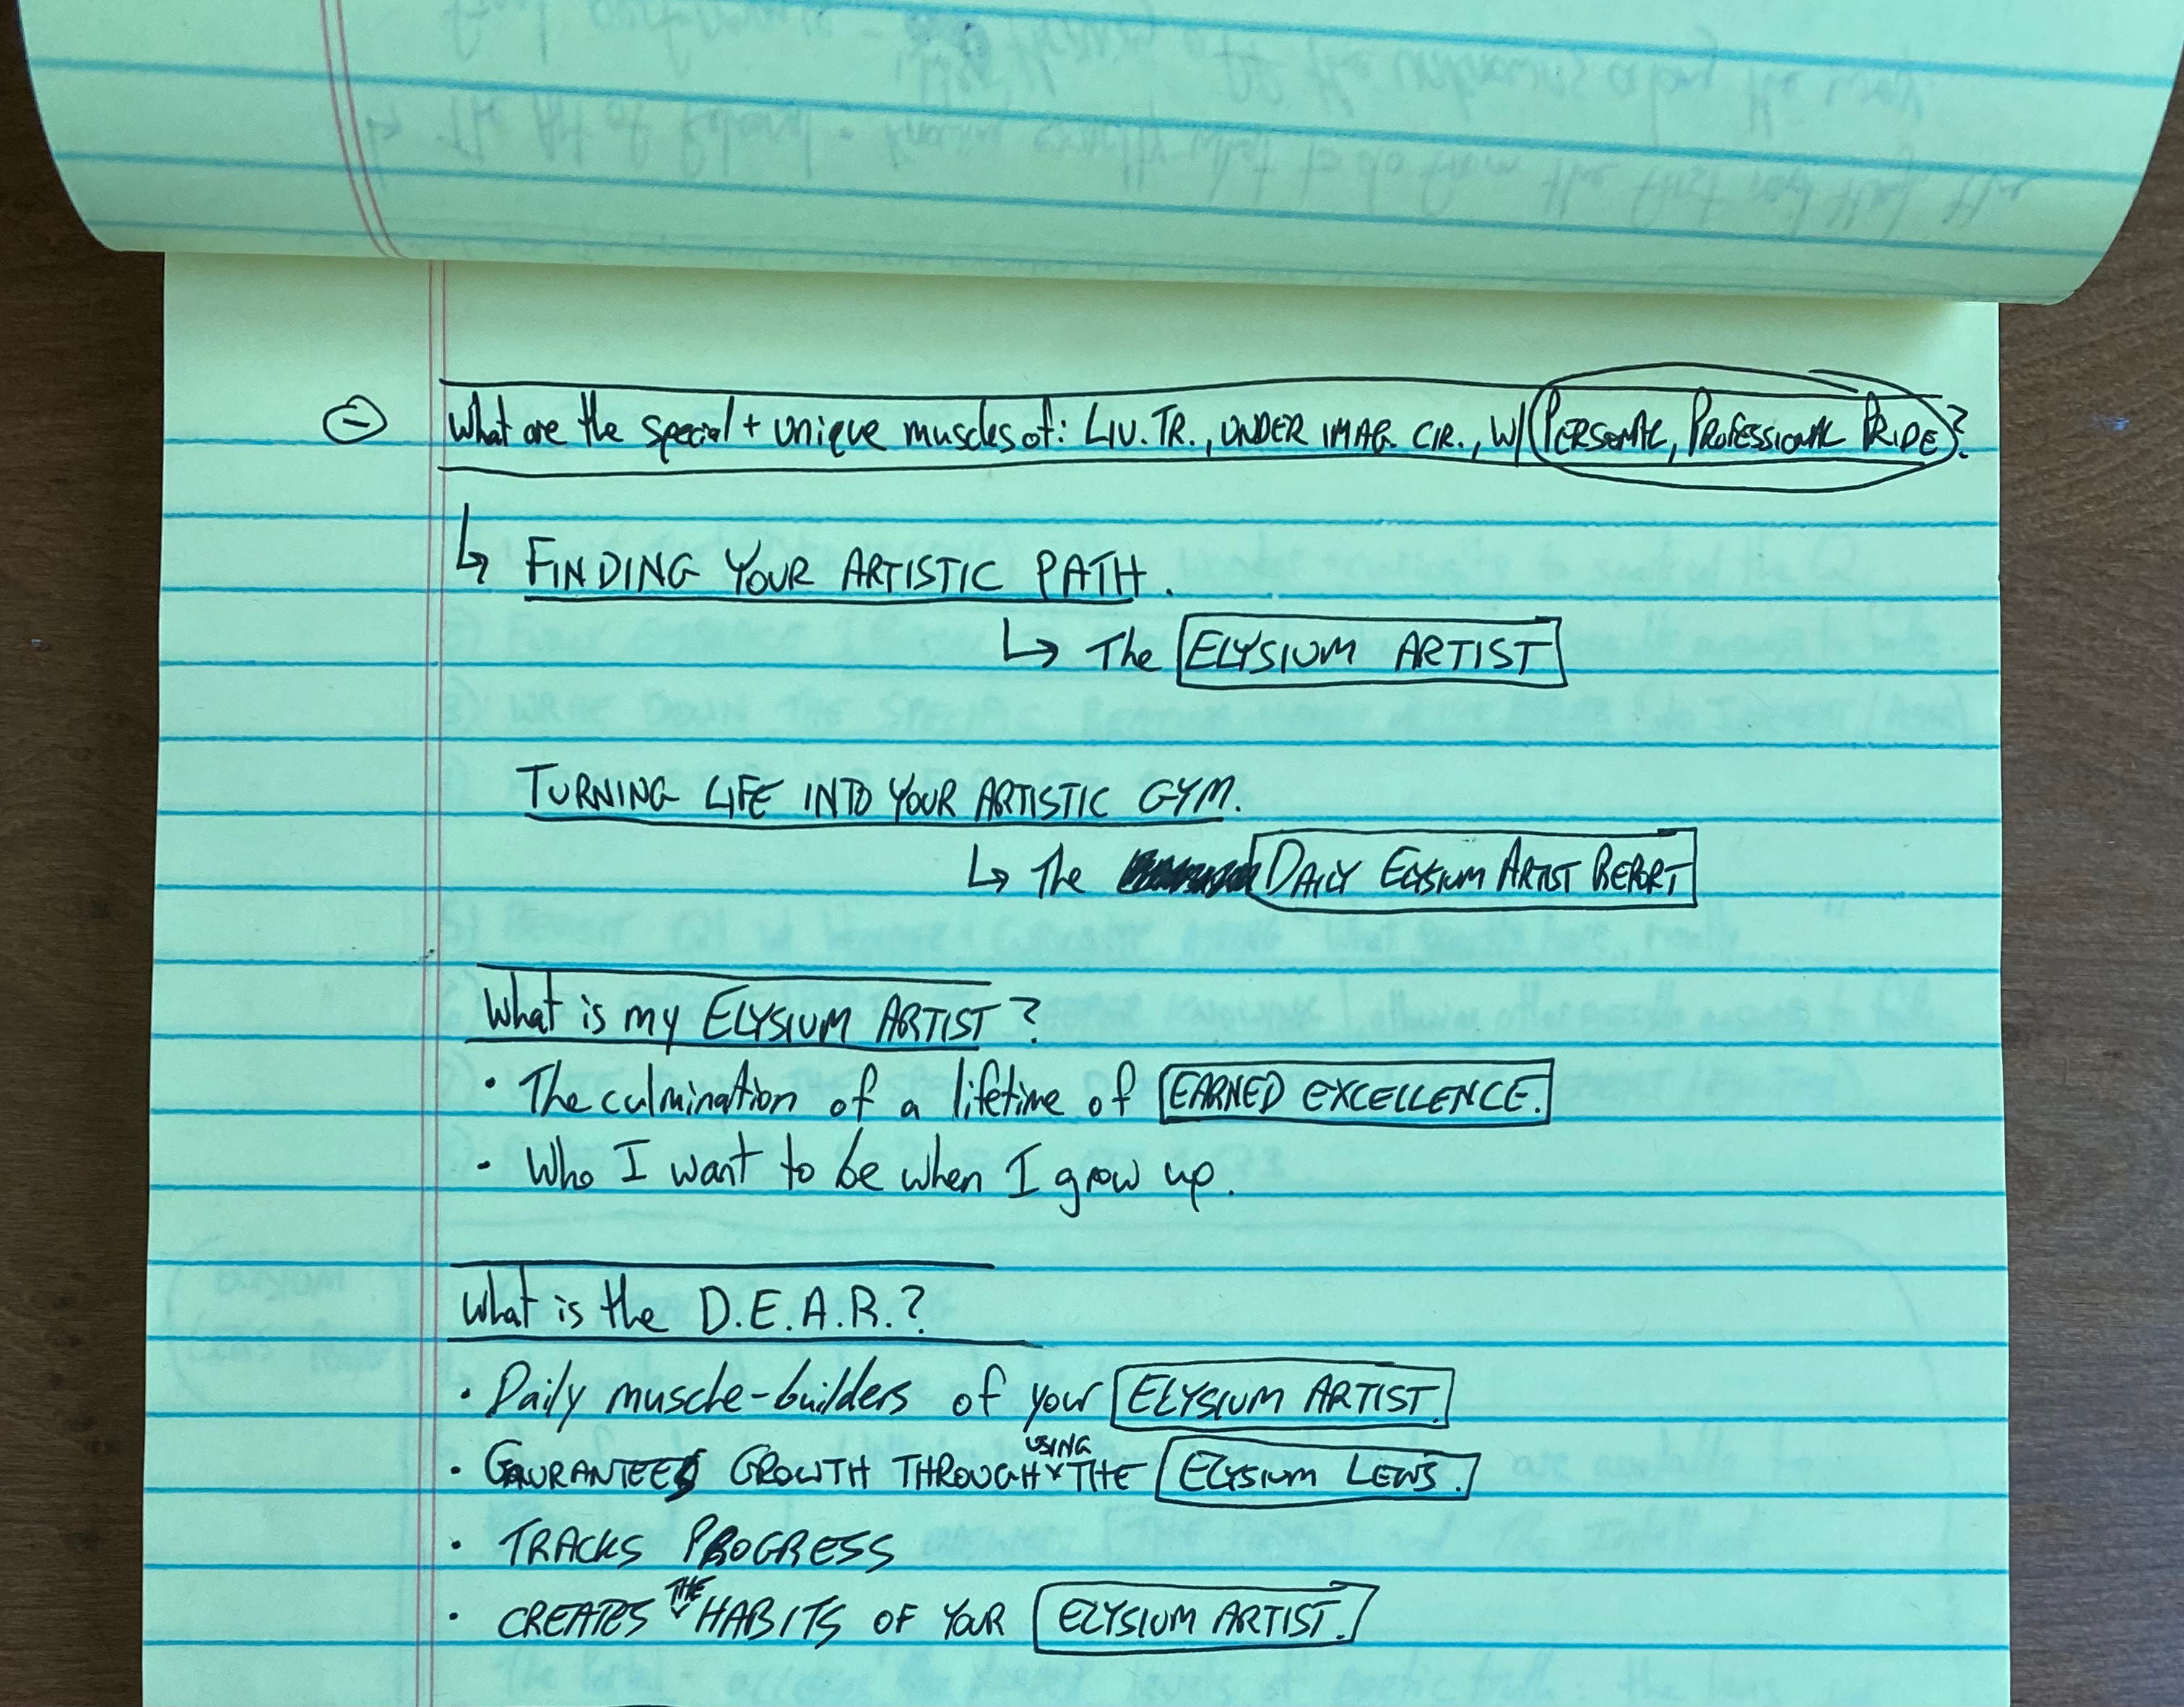 What are the special + unique muscles of: LIV. TR., UNDER IMAG. CIR., W/ PERSONAL, PROFESSIONAL PRIDE?
↳ FINDING YOUR ARTISTIC PATH.
↳ The ELYSIUM ARTIST
TURNING LIFE INTO YOUR ARTISTIC GYM.
↳ The DAILY ELYSIUM ARTIST REPORT
What is my ELYSIUM ARTIST?
• The culmination of a lifetime of EARNED EXCELLENCE.
• Who I want to be when I grow up.
What is the D.E.A.R.?
• Daily muscle-builders of your ELYSIUM ARTIST.
• GAURANTEES GROWTH THROUGH USING THE ELYSIUM LENS.
• TRACKS PROGRESS
• CREATES THE HABITS OF YOUR ELYSIUM ARTIST.